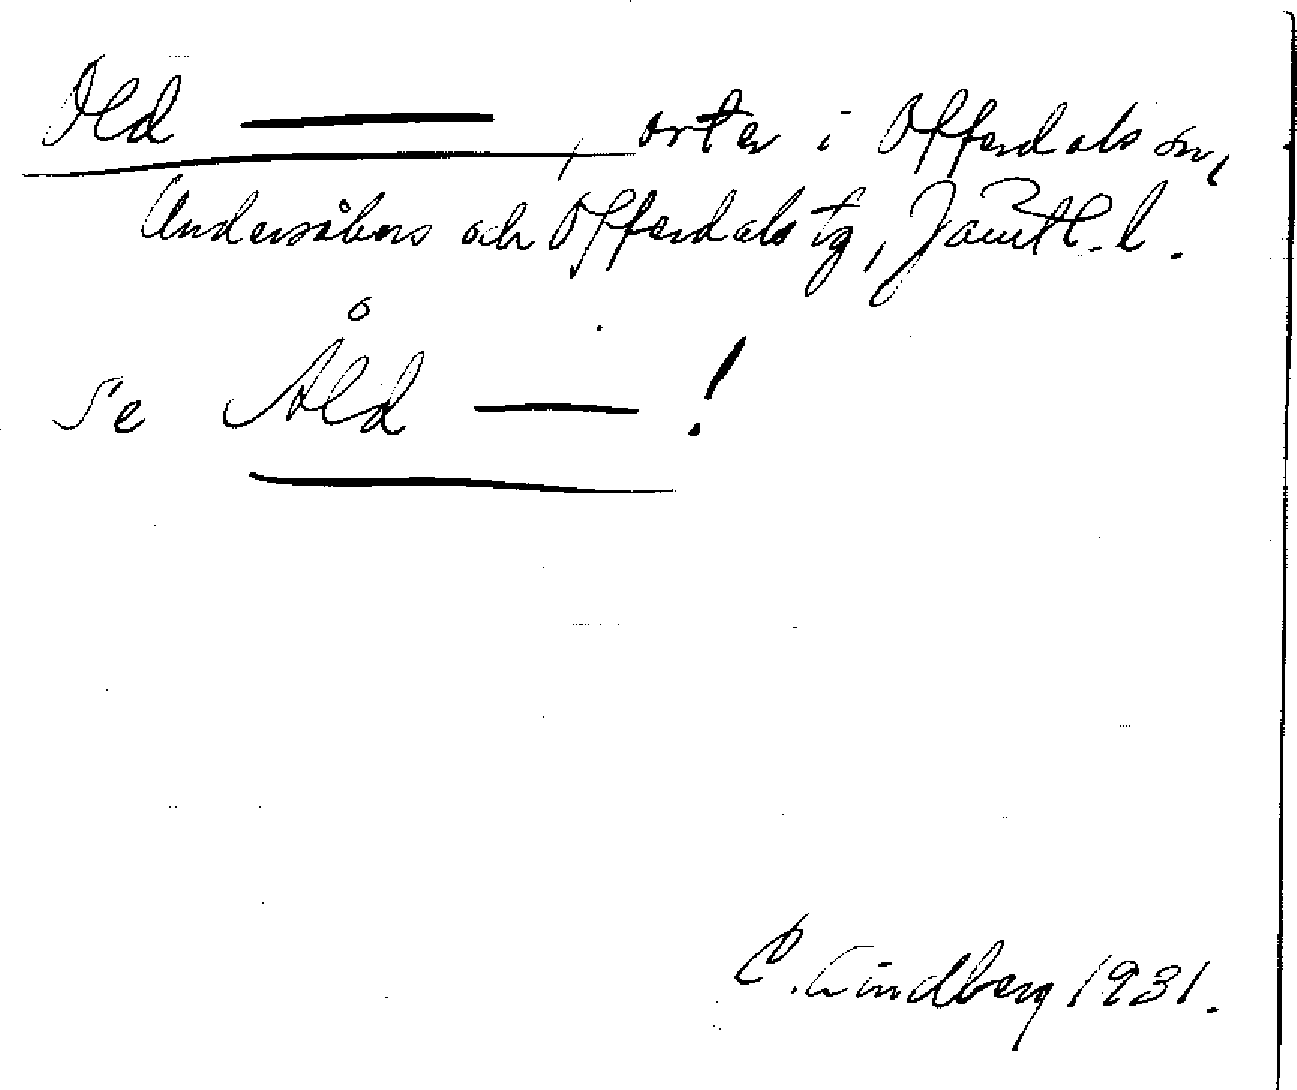 Old ——, orter i Offerdals sn,
Andersåbers och Offerdals tg, Jämtl. l.
Se Åld —— !
C. Lindberg 1931.